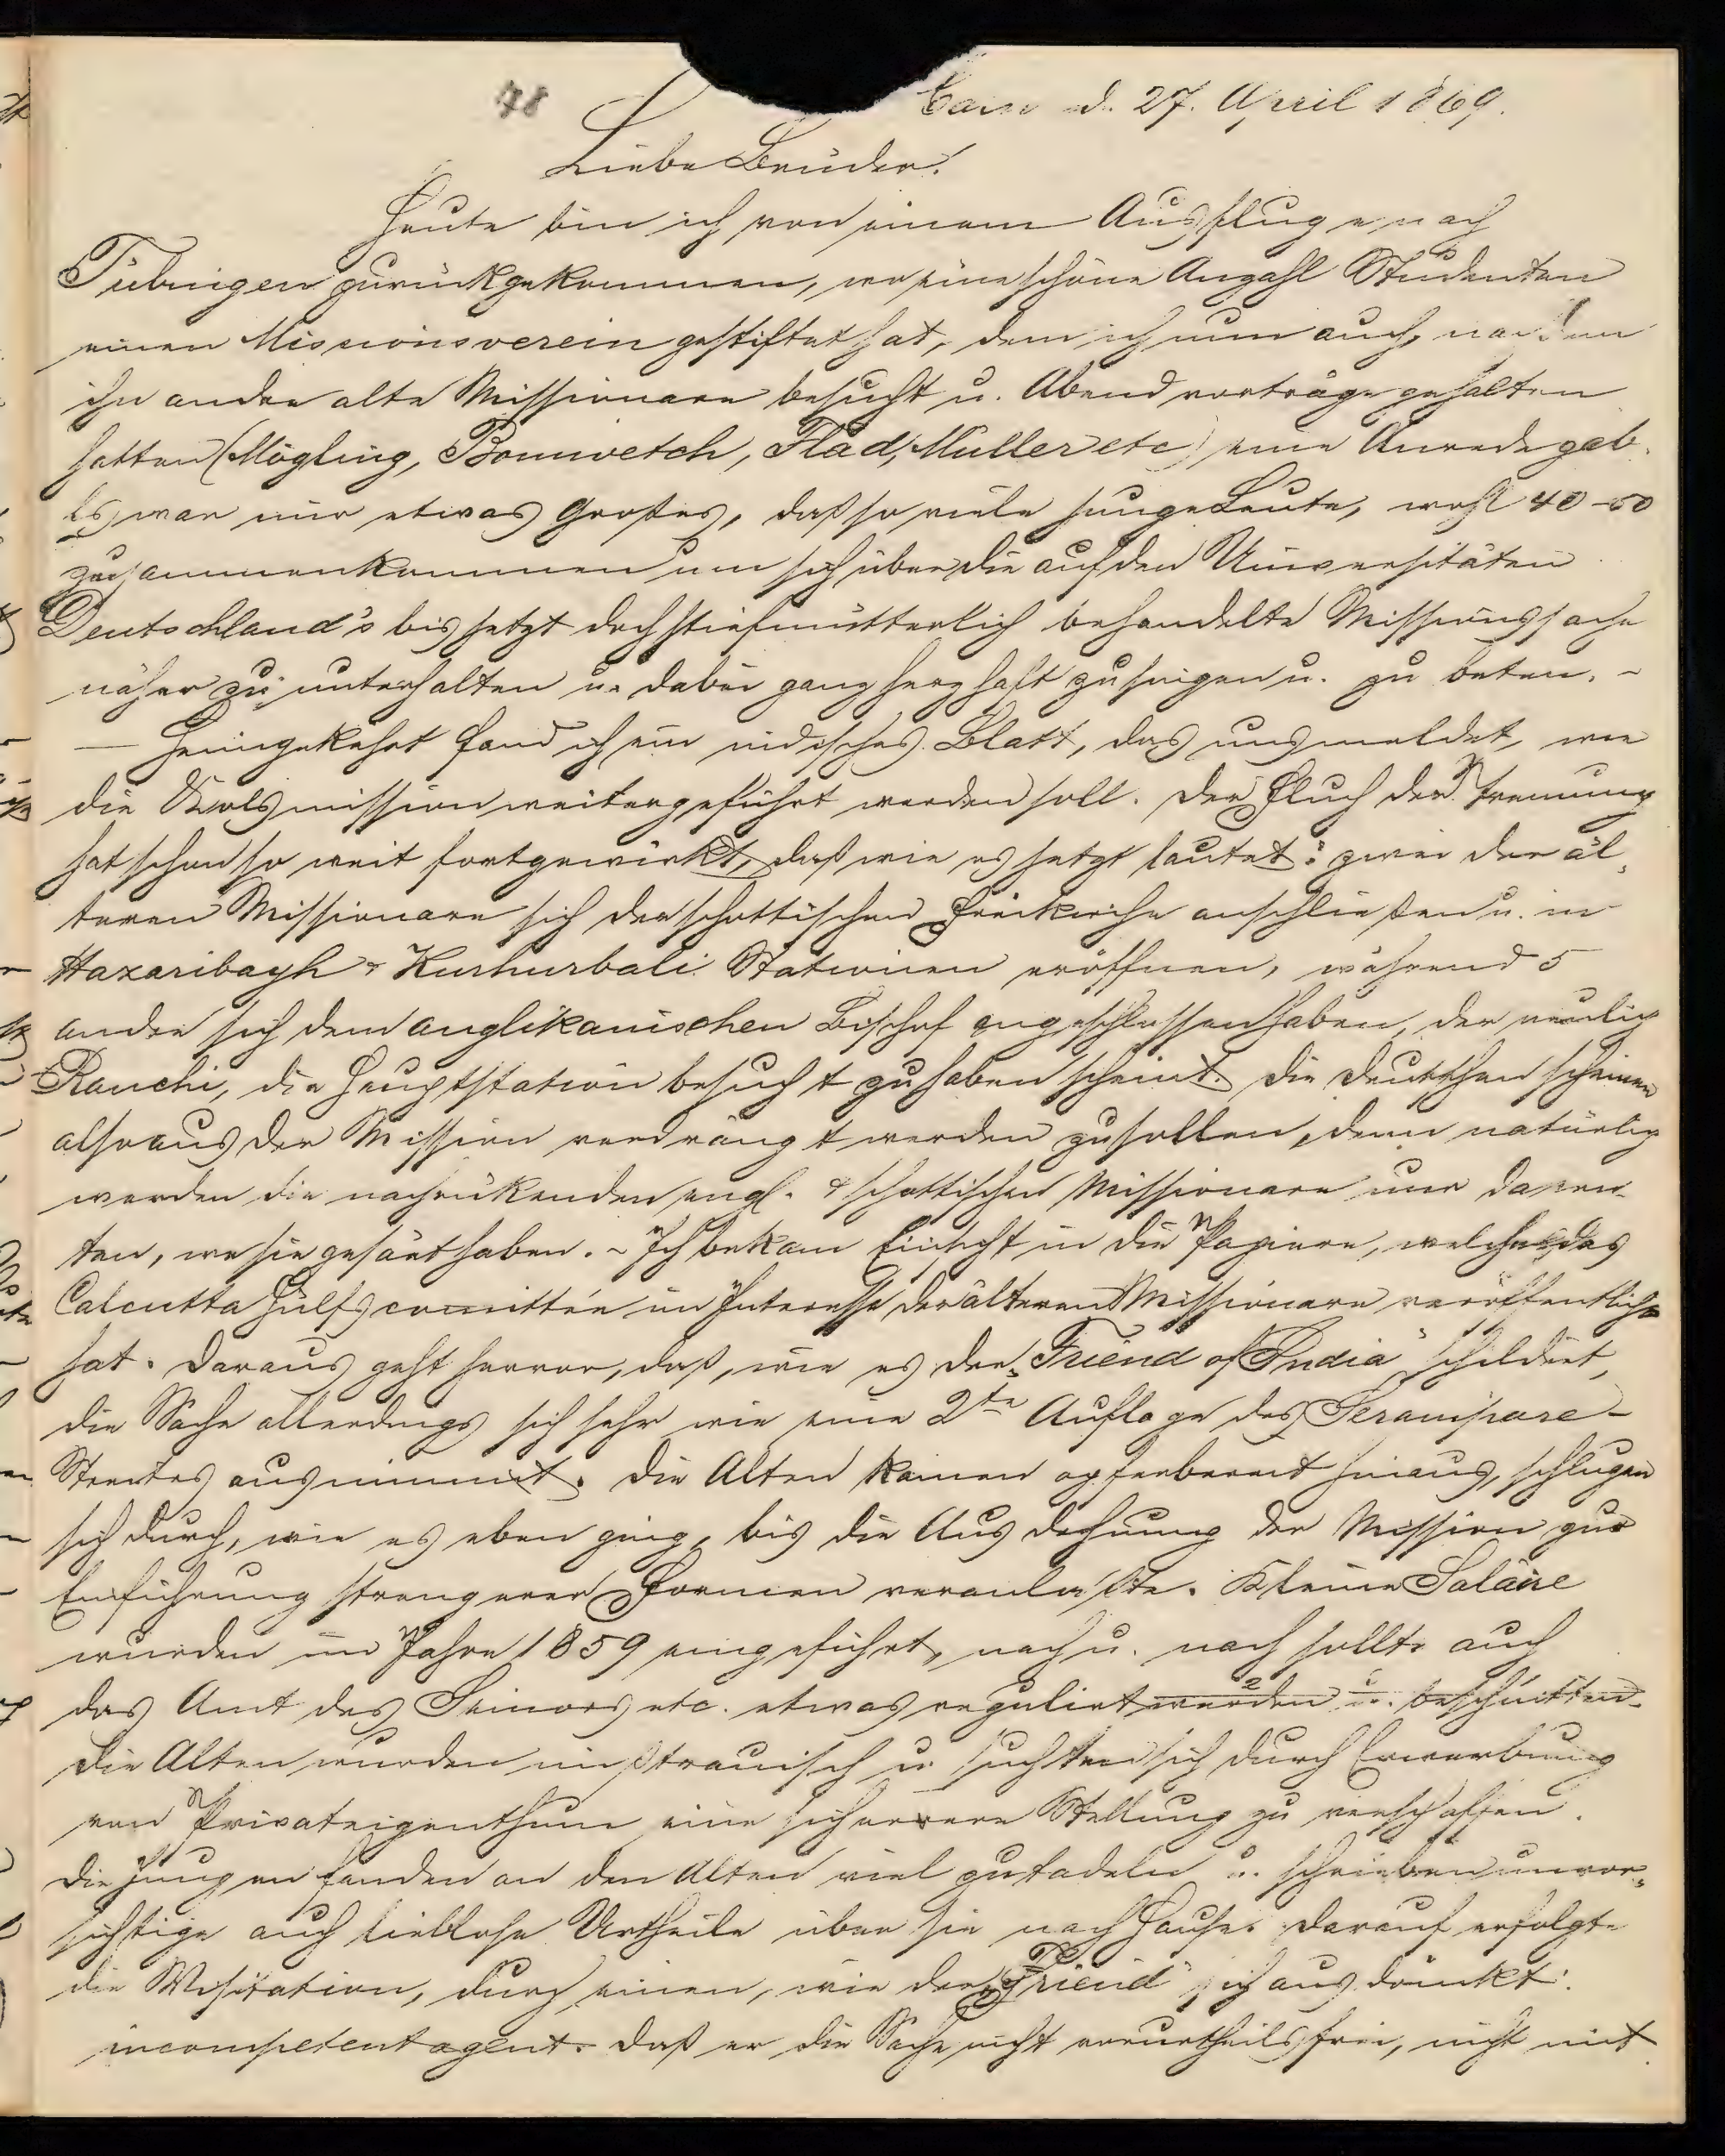 78
Calw d. 27. April 1869.
Liebe Brüder!
Heute bin ich von einem Ausfluge nach
Tübingen zurückgekommen, wo eine schöne Anzahl Studenten
einen Missionsverein gestiftet hat, dem ich nun auch, nachdem
ihn andre alte Missionare besucht u. Abendvorträge gehalten
hatten (Mögling, Bonnwetsch, Flad, Müller etc) eine Anrede gab.
Es war mir etwas Großes, daß so viele junge Leute, wohl 40-50
zusammenkommen um sich über die auf den Universitäten
Deutschland's bis jetzt doch stiefmütterlich behandelte Missionssache
näher zu unterhalten u. dabei ganz herzhaft zu singen u. zu beten. -
— Heimgekehrt fand ich ein indisches Blatt, das uns meldet, wie
die Kolsmission weitergeführt werden soll. Der Fluch der Trennung
hat schon so weit fortgewirkt, daß wie es jetzt lautet: zwei der äl-
teren Missionare sich der schottischen Freikirche anschließen u. in
Hazaribagh & Kurhurbali Stationen eröffnen, während 5
andre sich dem anglikanischen Bischof angeschlossen haben, der neulich
Ranchi, die Hauptstation besucht zu haben scheint. Die Deutschen scheinen
also aus der Mission verdrängt werden zu sollen, denn natürlich
werden die nachrückenden engl. & schottischen Missionare nur da ern-
ten, wo sie gesäet haben. - Ich bekam Einsicht in die Papiere, welche das
Calcutta Hülfscomittée im Interesse der älteren Missionare veröffentlicht
hat. Daraus geht hervor, daß, wie es der „Friend of India" schildert,
die Sache allerdings sich sehr wie eine 2te Auflage des Serampore-
Streites ausnimmt. Die Alten kamen opferbereit hinaus, schlugen
sich durch, wie es eben ging, bis die Ausdehnung der Mission zur
Einführung strengerer Formen veranlaßte. Kleine Saläire
wurden im Jahre 1859 eingeführt, nach u. nach sollte auch
das Amt des Seniors etc. etwas regulirt werden u. beschnitten.
Die Alten wurden mißtrauisch u. suchten sich durch Erwerbung
von Privateigenthum eine sicherere Stellung zu verschaffen.
Die Jungen fanden an den Alten viel zu tadeln u. schrieben unvor-
sichtige auch lieblose Urtheile über sie nach Hause. Darauf erfolgte
die Visitation, durch einen, wie der „Friend" sich ausdrückt:
incompetent agent. Daß er die Sache nicht vorurtheilsfrei, nicht mit